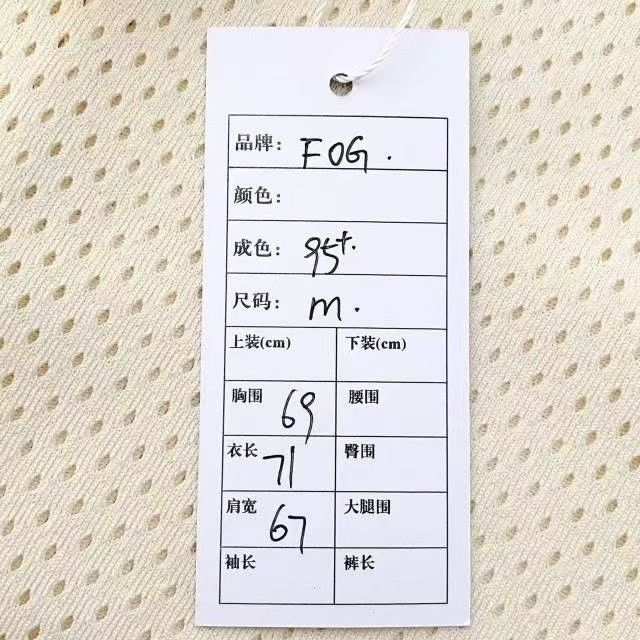 品牌: FOG.
颜色:
成色: 95+.
尺码: m.
上装(cm) 下装(cm)
胸围 69 腰围
衣长 71 臀围
肩宽 67 大腿围
袖长 裤长